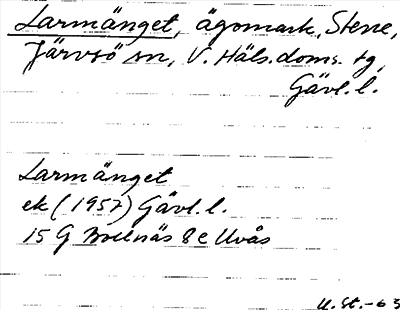 Larmänget, ägomark, Stene,
Järvsö sn, V. Häls. doms. tg,
Gävl. l.
Larmänget
ek (1957) Gävl. l.
15 G Bollnäs 8 e Uvås
U. St. -63